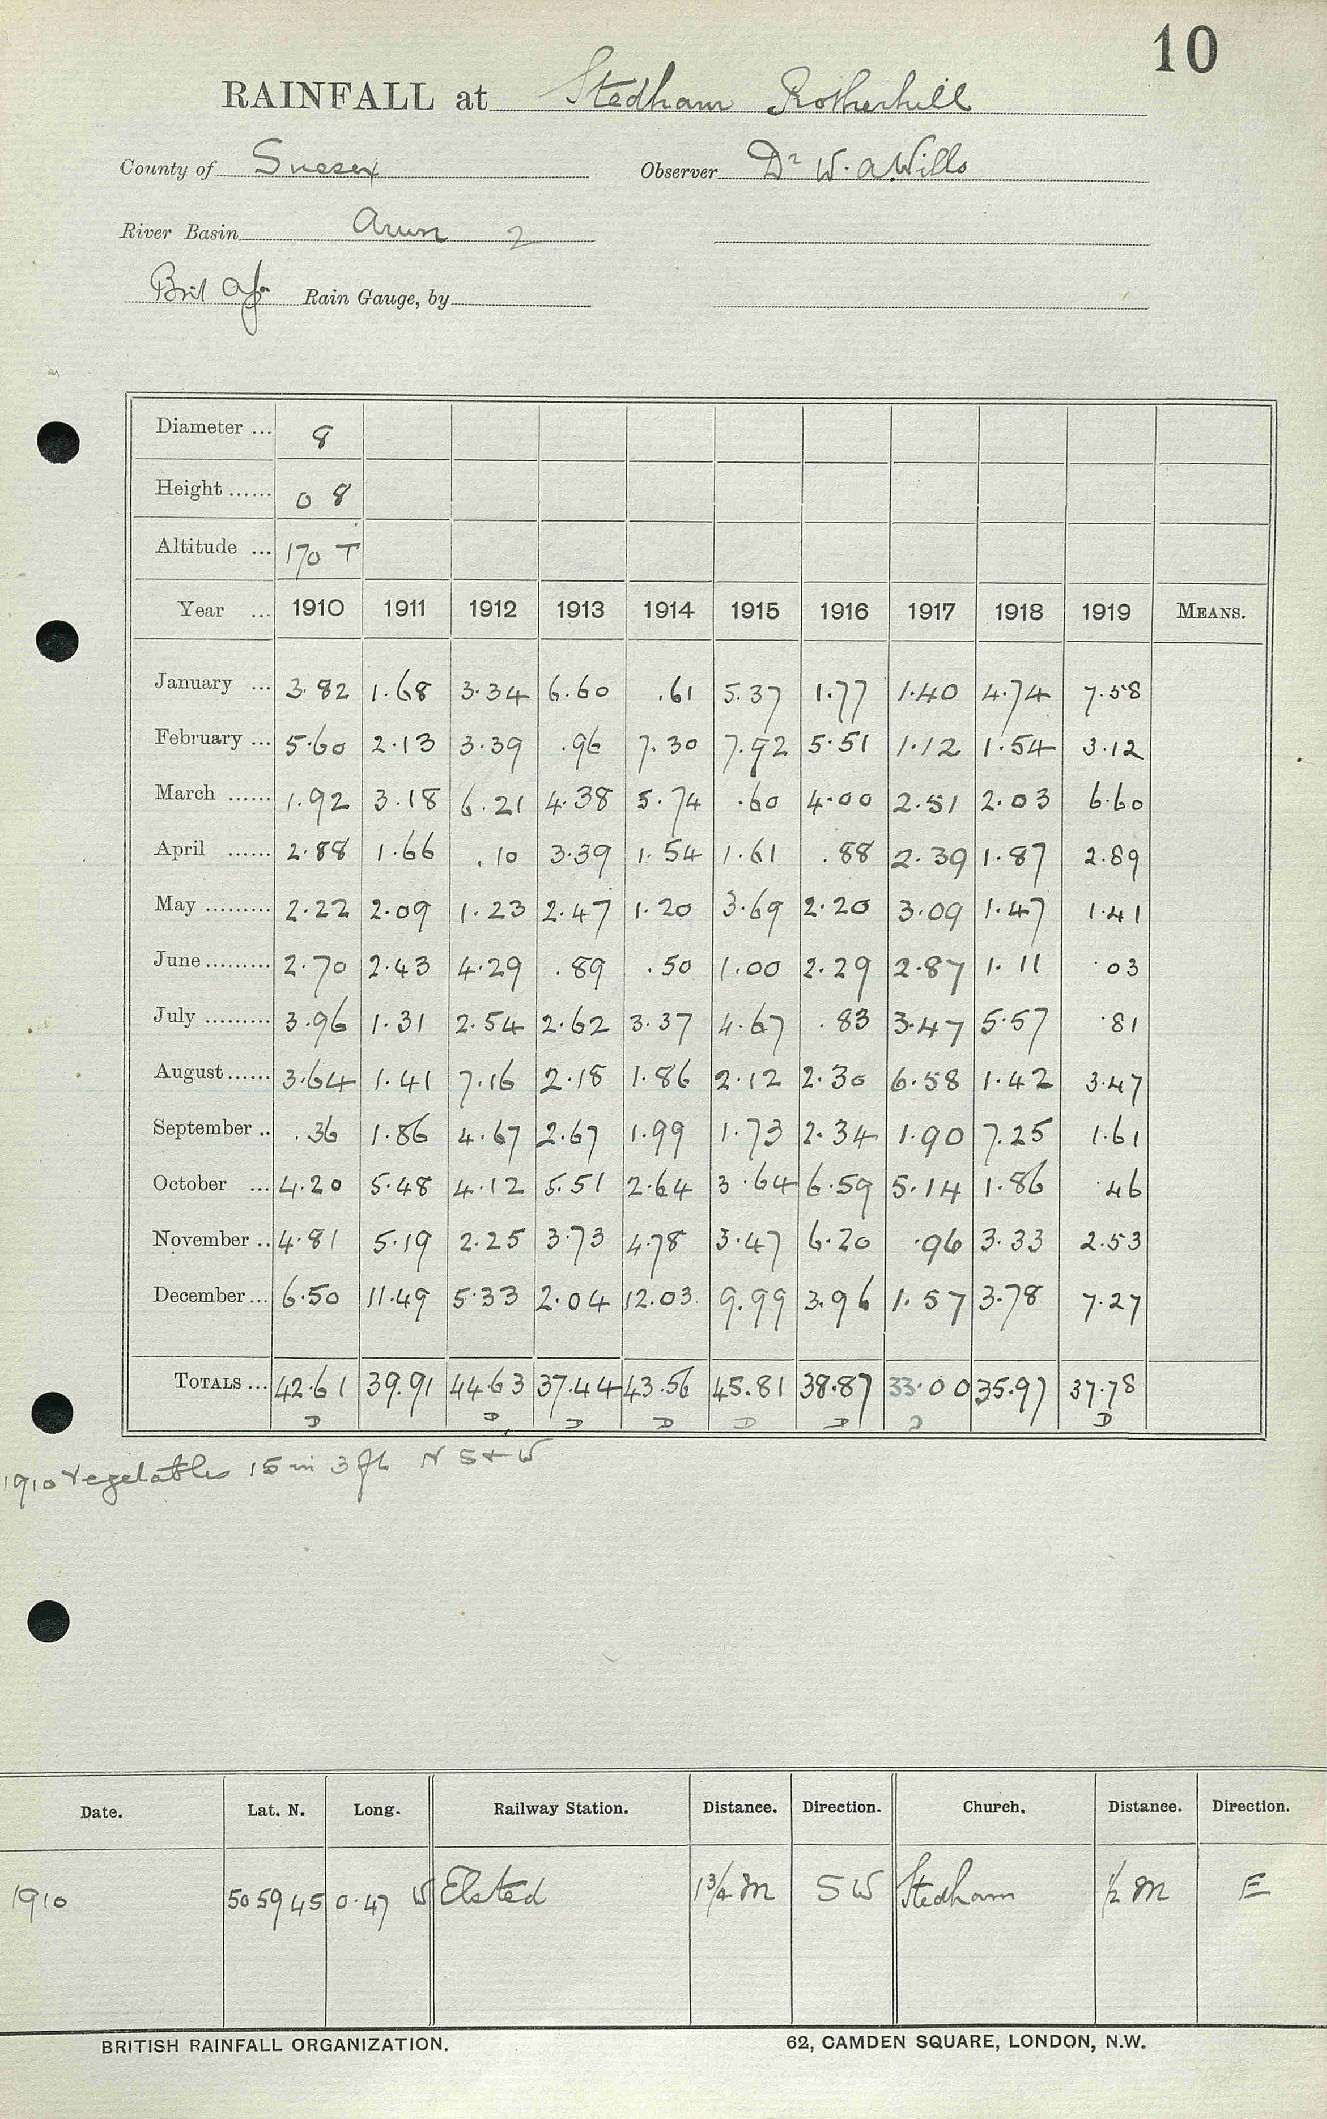 10
RAINFALL at Stedham Rotherhill
County of Sussex Observer Dr W. A Wills
River Basin Arun 2
Rain Gauge, by
Diameter ... 8
Height ...... 0 8
Altitude ... 170 T
Year ... 1910 1911 1912 1913 1914 1915 1916 1917 1918 1919 MEANS.
January ... 3.82 1.68 3.34 6.60 .61 5.37 1.77 1.40 4.74 7.58
February ... 5.60 2.13 3.39 .96 7.30 7.92 5.51 1.12 1.54 3.12
March ...... 1.92 3.18 6.21 4.38 5.74 .60 4.00 2.51 2.03 6.60
April ...... 2.88 1.66 .10 3.39 1.54 1.61 .88 2.39 1.87 2.89
May ......... 2.22 2.09 1.23 2.47 1.20 3.69 2.20 3.09 1.47 1.41
June ......... 2.70 2.43 4.29 .89 .50 1.00 2.29 2.87 1.11 .03
July ......... 3.96 1.31 2.54 2.62 3.37 4.67 .83 3.47 5.57 .81
August ...... 3.64 1.41 7.16 2.18 1.86 2.12 2.30 6.58 1.42 3.47
September .. .36 1.86 4.67 2.67 1.99 1.73 2.34 1.90 7.25 1.61
October ... 4.20 5.48 4.12 5.51 2.64 3.64 6.59 5.14 1.86 .46
November .. 4.81 5.19 2.25 3.73 4.78 3.47 6.20 .96 3.33 2.53
December ... 6.50 11.49 5.33 2.04 12.03 9.99 3.96 1.57 3.78 7.27
TOTALS ... 42.61 39.91 44.63 37.44 43.56 45.81 38.87 33.00 35.97 37.78
D D D D D D D D
1910 Vegetables 15 in 3 ft N S + W
Date. Lat. N. Long. Railway Station. Distance. Direction. Church. Distance. Direction.
1910 50 59 45 0.47 W Elsted 1 3/4 M SW Stedham 1/2 M E
BRITISH RAINFALL ORGANIZATION. 62, CAMDEN SQUARE, LONDON, N.W.